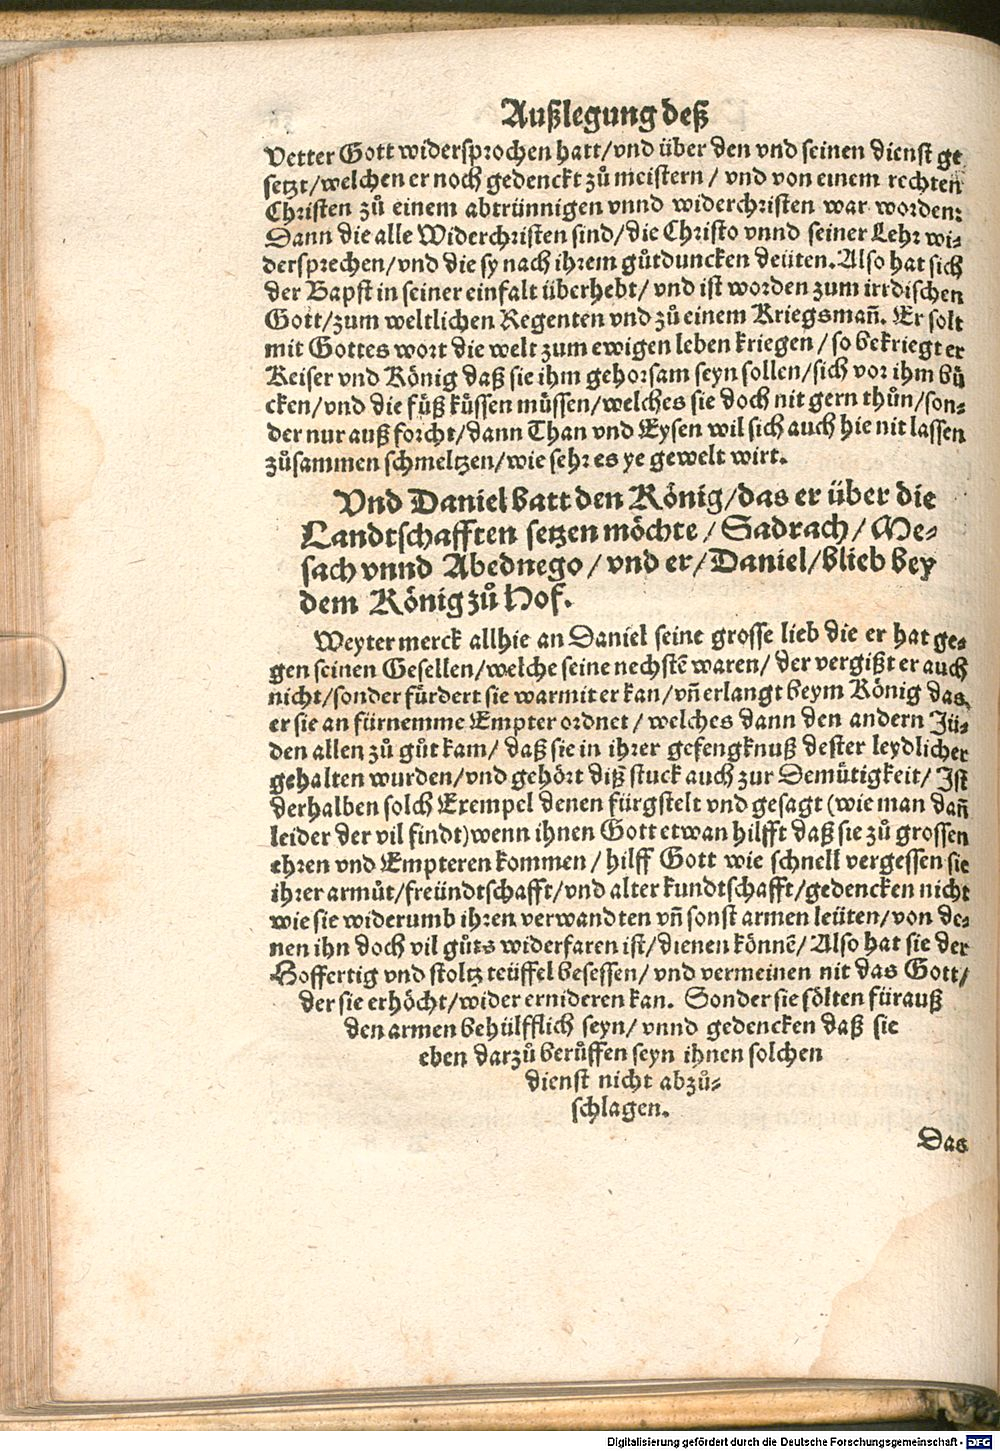 Außlegung deß
Vetter Gott widersprochen hatt/vnd über den vnd seinen dienst ge
setzt/welchen er noch gedenckt zů meistern / vnd von einem rechten
Christen zů einem abtrünnigen vnnd widerchristen war worden:
Dann die alle Widerchristen sind/die Christo vnnd seiner Lehr wi-
dersprechen/vnd die sy nach ihrem gůtduncken deüten. Also hat sich
der Bapst in seiner einfalt überhebt/ vnd ist worden zum irrdischen
Gott/zum weltlichen Regenten vnd zů einem Kriegsmañ. Er solt
mit Gottes wort die welt zum ewigen leben kriegen / so bekriegt er
Keiser vnd König daß sie ihm gehorsam seyn sollen/sich vor ihm bů
cken/vnd die fůß küssen müssen/welches sie doch nit gern thůn/son-
der nur auß forcht/dann Than vnd Eysen wil sich auch hie nit lassen
zůsammen schmeltzen/wie sehr es ye gewelt wirt.
Vnd Daniel batt den König/das er über die
Landtschafften setzen möchte / Sadrach/ Me-
sach vnnd Abednego / vnd er/ Daniel/ blieb bey
dem König zů Hof.
Weyter merck allhie an Daniel seine grosse lieb die er hat ge-
gen seinen Gesellen/welche seine nechstē waren/ der vergißt er auch
nicht/sonder fürdert sie warmit er kan/vñ erlangt beym König das
er sie an fürnemme Empter ordnet / welches dann den andern Jü-
den allen zů gůt kam/ daß sie in ihrer gefengknuß dester leydlicher
gehalten wurden/vnd gehört diß stuck auch zur Demütigkeit/ Ist
derhalben solch Exempel denen fürgstelt vnd gesagt (wie man dañ
leider der vil findt) wenn ihnen Gott etwan hilfft daß sie zů grossen
ehren vnd Empteren kommen / hilff Gott wie schnell vergessen sie
ihrer armůt/freündtschafft/vnd alter kundtschafft/gedencken nicht
wie sie widerumb ihren verwandten vñ sonst armen leüten/von de-
nen ihn doch vil gůts widerfaren ist/dienen könnē/ Also hat sie der
Hoffertig vnd stoltz teüffel besessen/ vnd vermeinen nit das Gott/
der sie erhöcht/wider ernideren kan. Sonder sie sölten fürauß
den armen behülfflich seyn/ vnnd gedencken daß sie
eben darzů berůffen seyn ihnen solchen
dienst nicht abzů-
schlagen.
Das
Digitalisierung gefördert durch die Deutsche Forschungsgemeinschaft - DFG